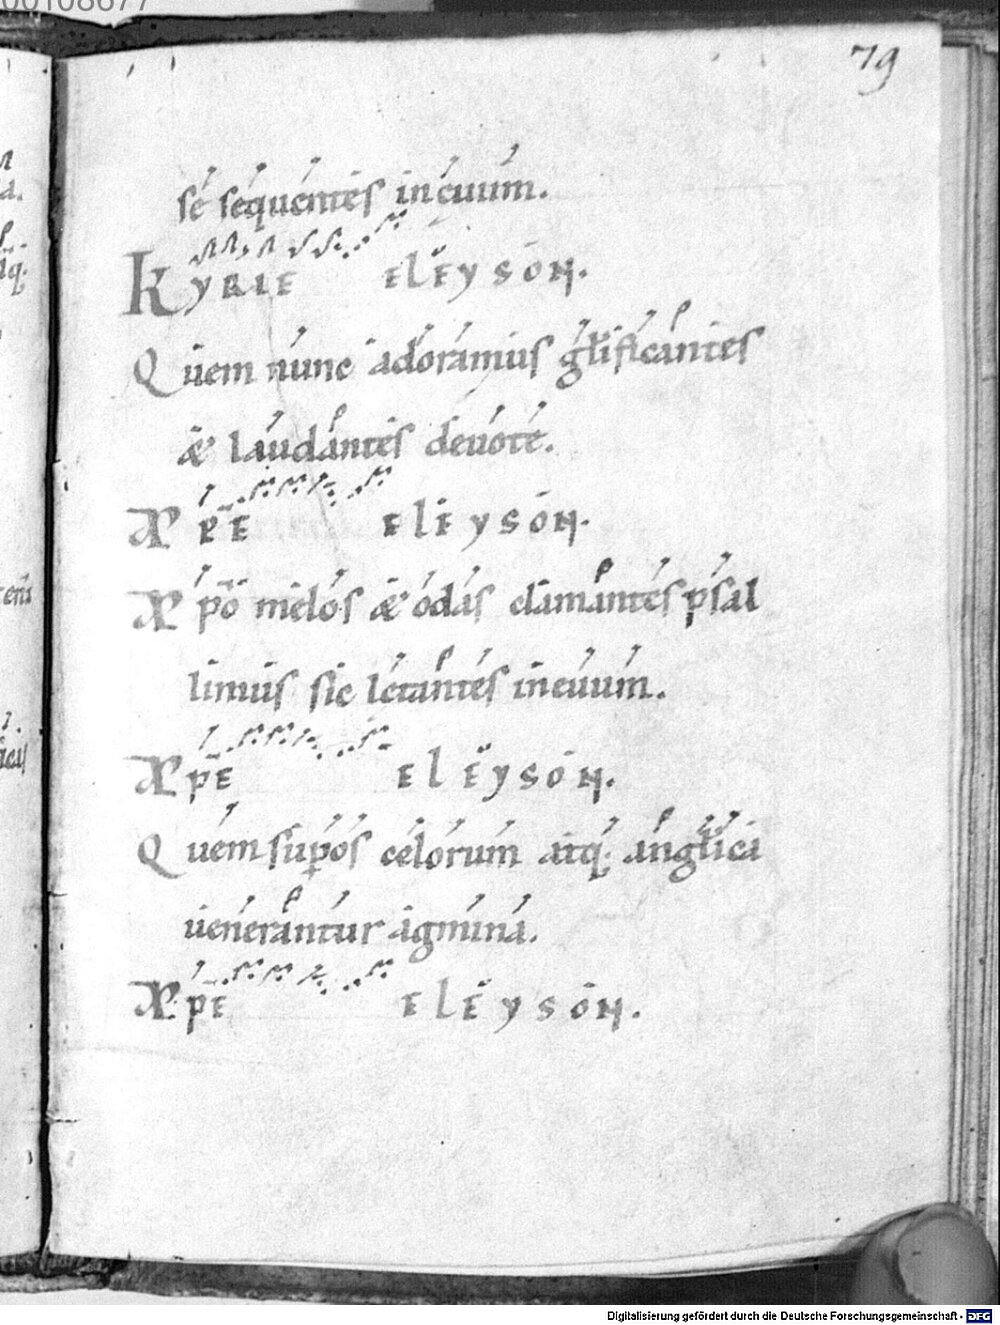 00108677
79
se sequentes ineuum.
KYRIE ELEYSON.
Quem nunc adoramus gl̄ificantes
æ laudantes deuote.
XP̄E ELEYSON.
Xp̄o melos æ odas clamantes psal
limus sic letantes ineuum.
XP̄E ELEYSON.
Quem sup̱os celorum atq; angl̄ica
uenerantur agmina.
XP̄E ELEYSON.
Digitalisierung gefördert durch die Deutsche Forschungsgemeinschaft - DFG